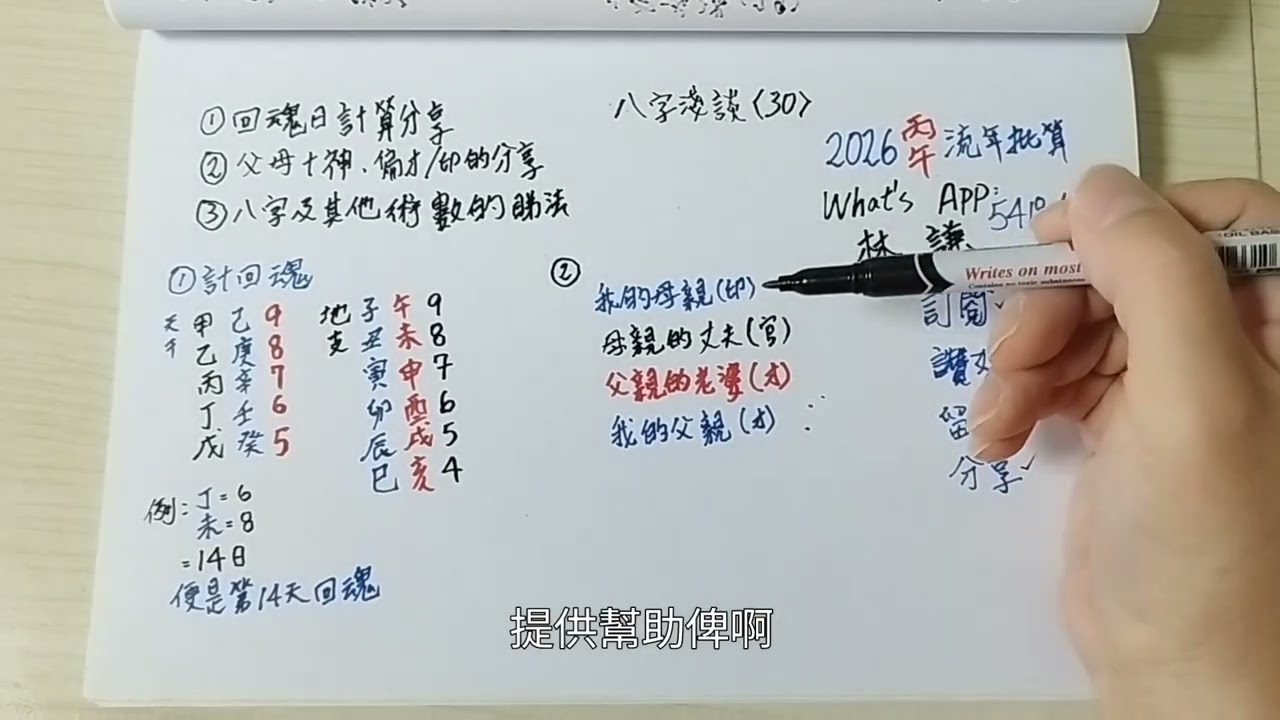 八字淺談〈30〉
①回魂日計算分享
②父母十神、偏才/印的分享
③八字及其他術數的睇法
2026丙午流年批算
What's APP: 541
林 謙
訂閱✓
讚
留
分享✓
①計回魂
天干
甲 乙 9
乙 庚 8
丙 辛 7
丁 壬 6
戊 癸 5
地支
子 午 9
丑 未 8
寅 申 7
卯 酉 6
辰 戌 5
巳 亥 4
例：丁=6
未=8
=14日
便是第14天回魂
②
我的母親(印)
母親的丈夫(官)
父親的老婆(才)
我的父親(才)
Writes on most
OIL BAS
提供幫助俾啊